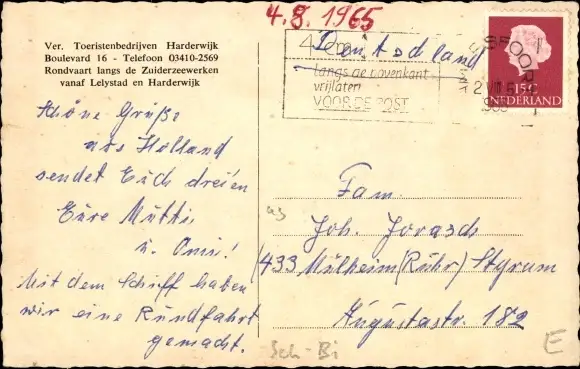 4.8.1965
Ver. Toeristenbedrijven Harderwijk
Boulevard 16 - Telefoon 03410-2569
Rondvaart langs de Zuiderzeewerken
vanaf Lelystad en Harderwijk
Deutschland
langs de bovenkant
vrijlaten
VOOR DE POST
SPOOR
15 C
NEDERLAND
Schöne Grüße
aus Holland
sendet Euch dreien
Eure Mutti
u. Omi!
Mit dem Schiff haben
wir eine Rundfahrt
gemacht.
Fam.
Joh. Jorasch
433 Mülheim (Ruhr) Styrum
Augustastr. 182
Sch-Bi
E